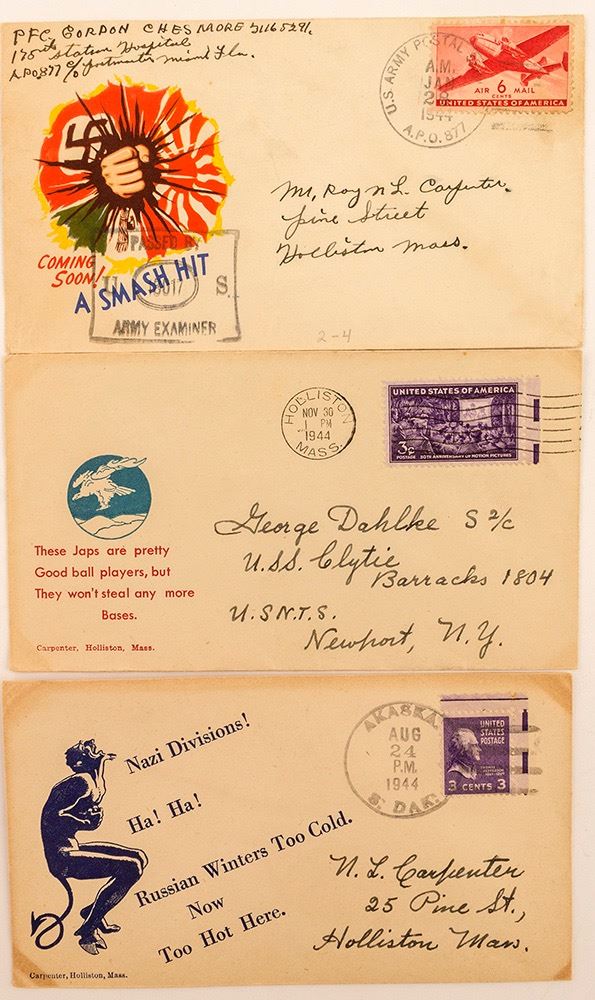 PFC. GORDON CHESMORE 31165291.
175th Station Hospital
A.P.O. 877 c/o Postmaster Miami Fla.
U.S. ARMY POSTAL
A.M.
JAN
28
1944
A.P.O. 877
AIR 6 MAIL
CENTS
UNITED STATES OF AMERICA
Mr. Roy N L. Carpenter.
Pine Street
Holliston Mass.
COMING
SOON!
A SMASH HIT
PASSED BY
U S.
ARMY EXAMINER
2-4
HOLLISTON
NOV 30
1 PM
1944
MASS.
UNITED STATES OF AMERICA
3¢
POSTAGE 50TH ANNIVERSARY OF MOTION PICTURES
These Japs are pretty
Good ball players, but
They won't steal any more
Bases.
Carpenter, Holliston, Mass.
George Dahlke S 2/c
U.S.S. Clytie
Barracks 1804
U.S.N.T.S.
Newport, N.Y.
AKASKA,
AUG
24
P.M.
1944
S. DAK.
UNITED
STATES
POSTAGE
3 CENTS 3
Nazi Divisions!
Ha! Ha!
Russian Winters Too Cold.
Now
Too Hot Here.
N. L. Carpenter
25 Pine St.,
Holliston Mass.
Carpenter, Holliston, Mass.